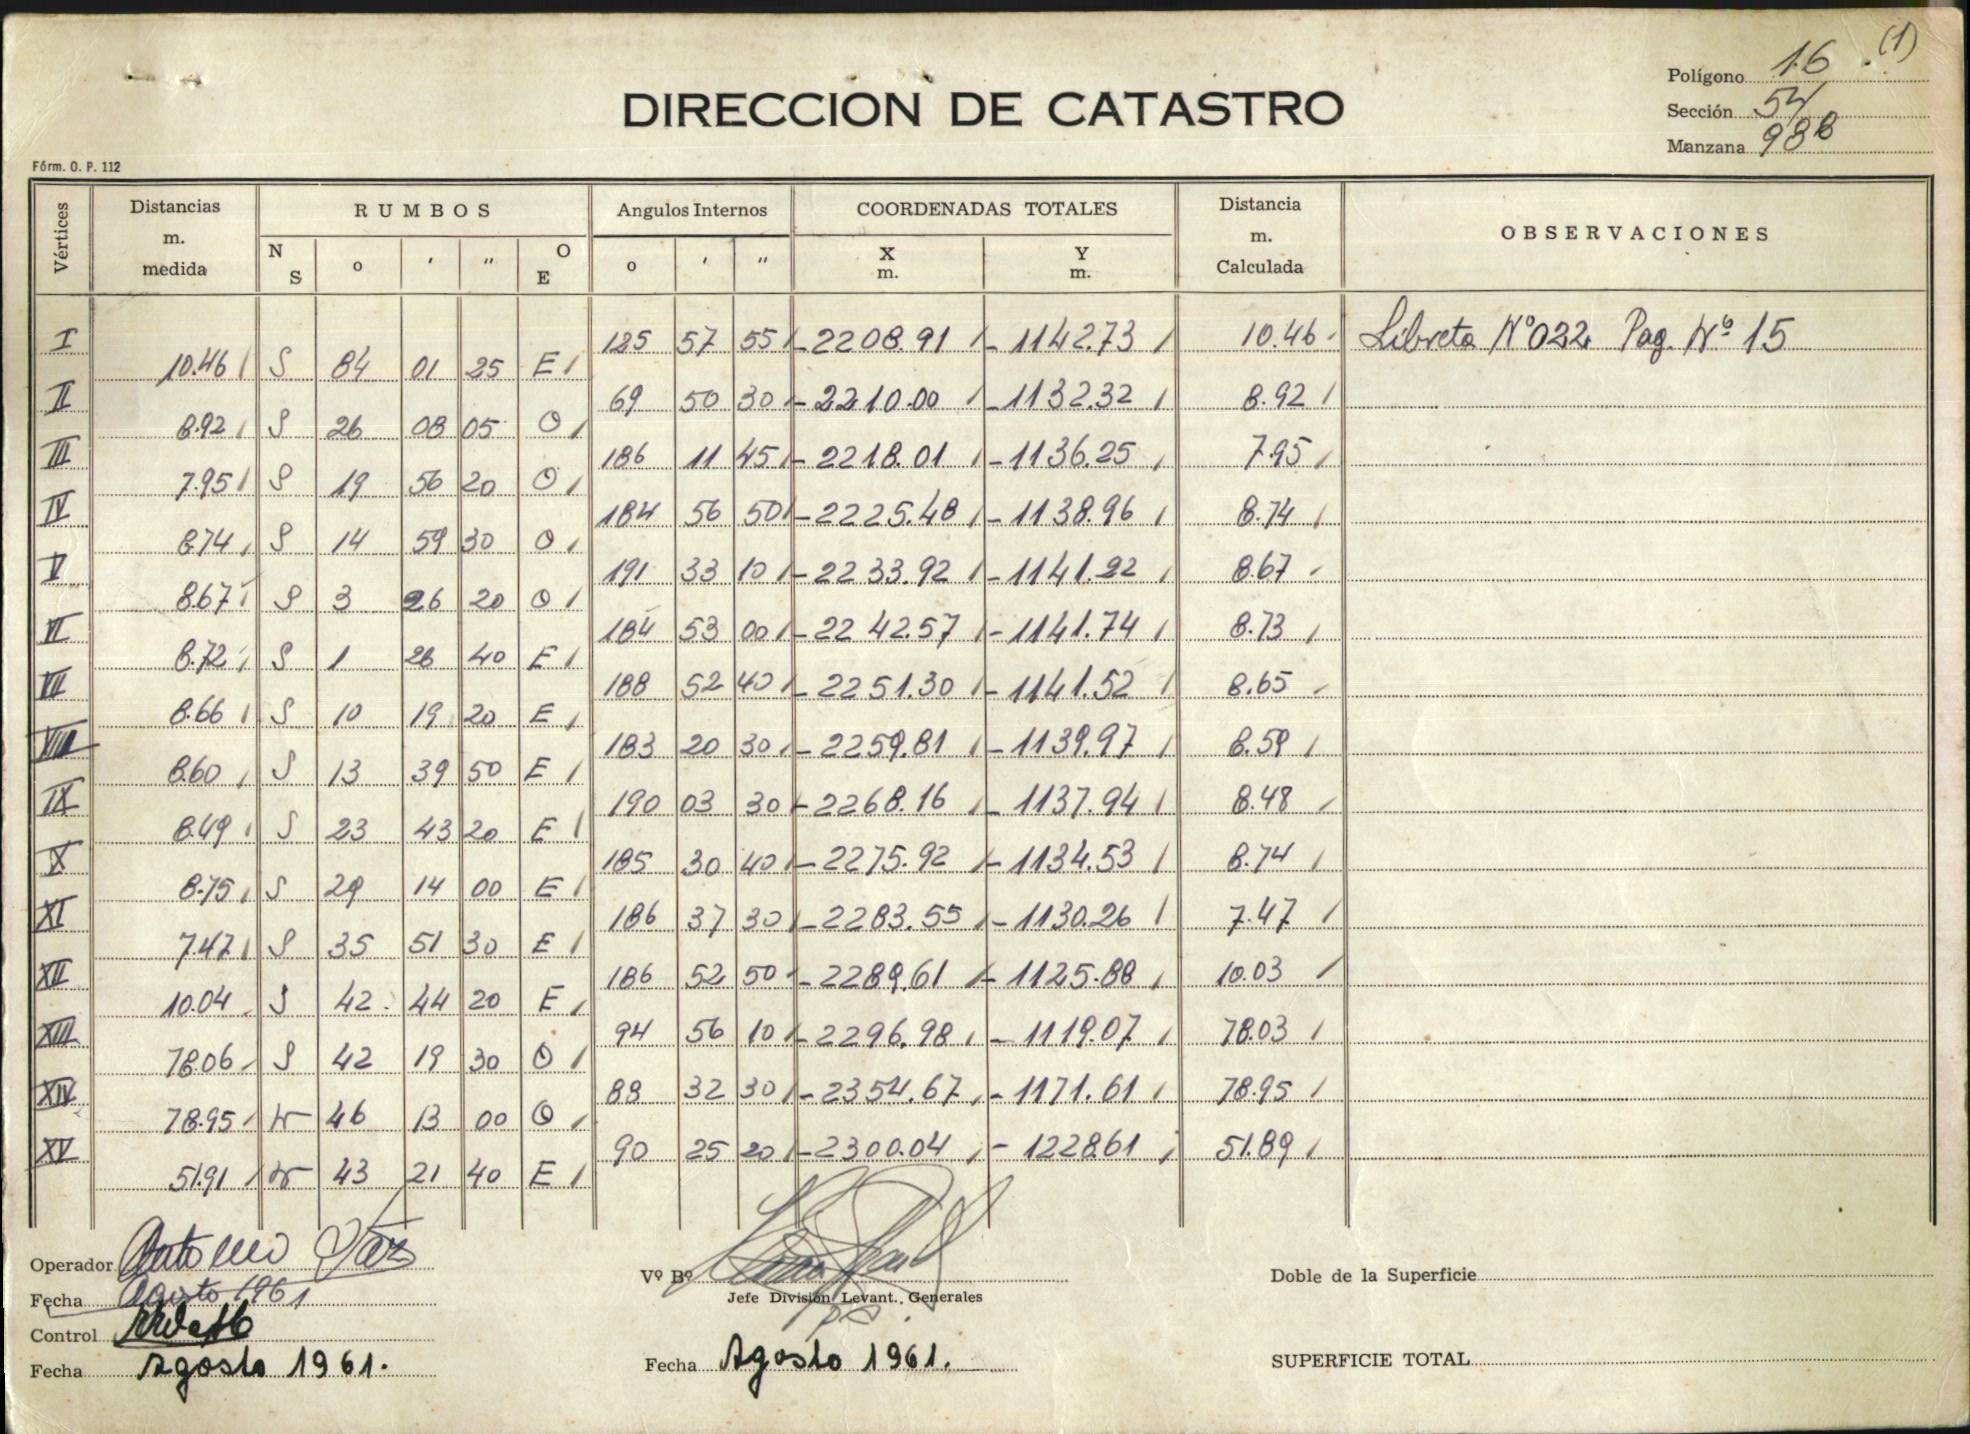 (1)
Polígono 16
DIRECCION DE CATASTRO
Sección 54
Manzana 988
Fórm. O. P. 112
Vértices Distancias m. medida RUMBOS N S o ' " O E Angulos Internos o ' " COORDENADAS TOTALES X m. Y m. Distancia m. Calculada OBSERVACIONES
I 125 57 55 -2208.91 -1142.73 10.46 Libreta Nº 022 Pag. Nº 15
10.46 S 84 01 25 E
II 69 50 30 -2210.00 -1132.32 8.92
8.92 S 26 08 05 O
III 186 11 45 -2218.01 -1136.25 7.95
7.95 S 19 56 20 O
IV 184 56 50 -2225.48 -1138.96 8.74
8.74 S 14 59 30 O
V 191 33 10 -2233.92 -1141.22 8.67
8.67 S 3 26 20 O
VI 184 53 00 -2242.57 -1141.74 8.73
8.72 S 1 26 40 E
VII 188 52 40 -2251.30 -1141.52 8.65
8.66 S 10 19 20 E
VIII 183 20 30 -2259.81 -1139.97 8.59
8.60 S 13 39 50 E
IX 190 03 30 -2268.16 -1137.94 8.48
8.49 S 23 43 20 E
X 185 30 40 -2275.92 -1134.53 8.74
8.75 S 29 14 00 E
XI 186 37 30 -2283.55 -1130.26 7.47
7.47 S 35 51 30 E
XII 186 52 50 -2289.61 -1125.88 10.03
10.04 S 42 44 20 E
XIII 94 56 10 -2296.98 -1119.07 78.03
78.06 S 42 19 30 O
XIV 88 32 30 -2354.67 -1171.61 78.95
78.95 N 46 13 00 O
XV 90 25 20 -2300.04 -1228.61 51.89
51.91 N 43 21 40 E
Operador Antonio
Vº Bº
Doble de la Superficie
Jefe División Levant. Generales
Fecha Agosto 1961
Control
Fecha Agosto 1961.
Fecha Agosto 1961.
SUPERFICIE TOTAL